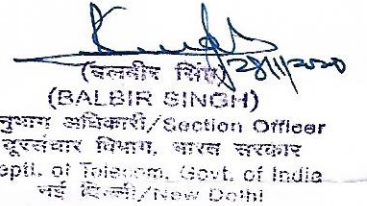 28/11/2020
(बलबीर सिंह)
(BALBIR SINGH)
नुभाग अधिकारी/Section Officer
दूरसंचार विभाग, भारत सरकार
eptt. of Telecom. Govt. of India
नई दिल्ली/New Delhi